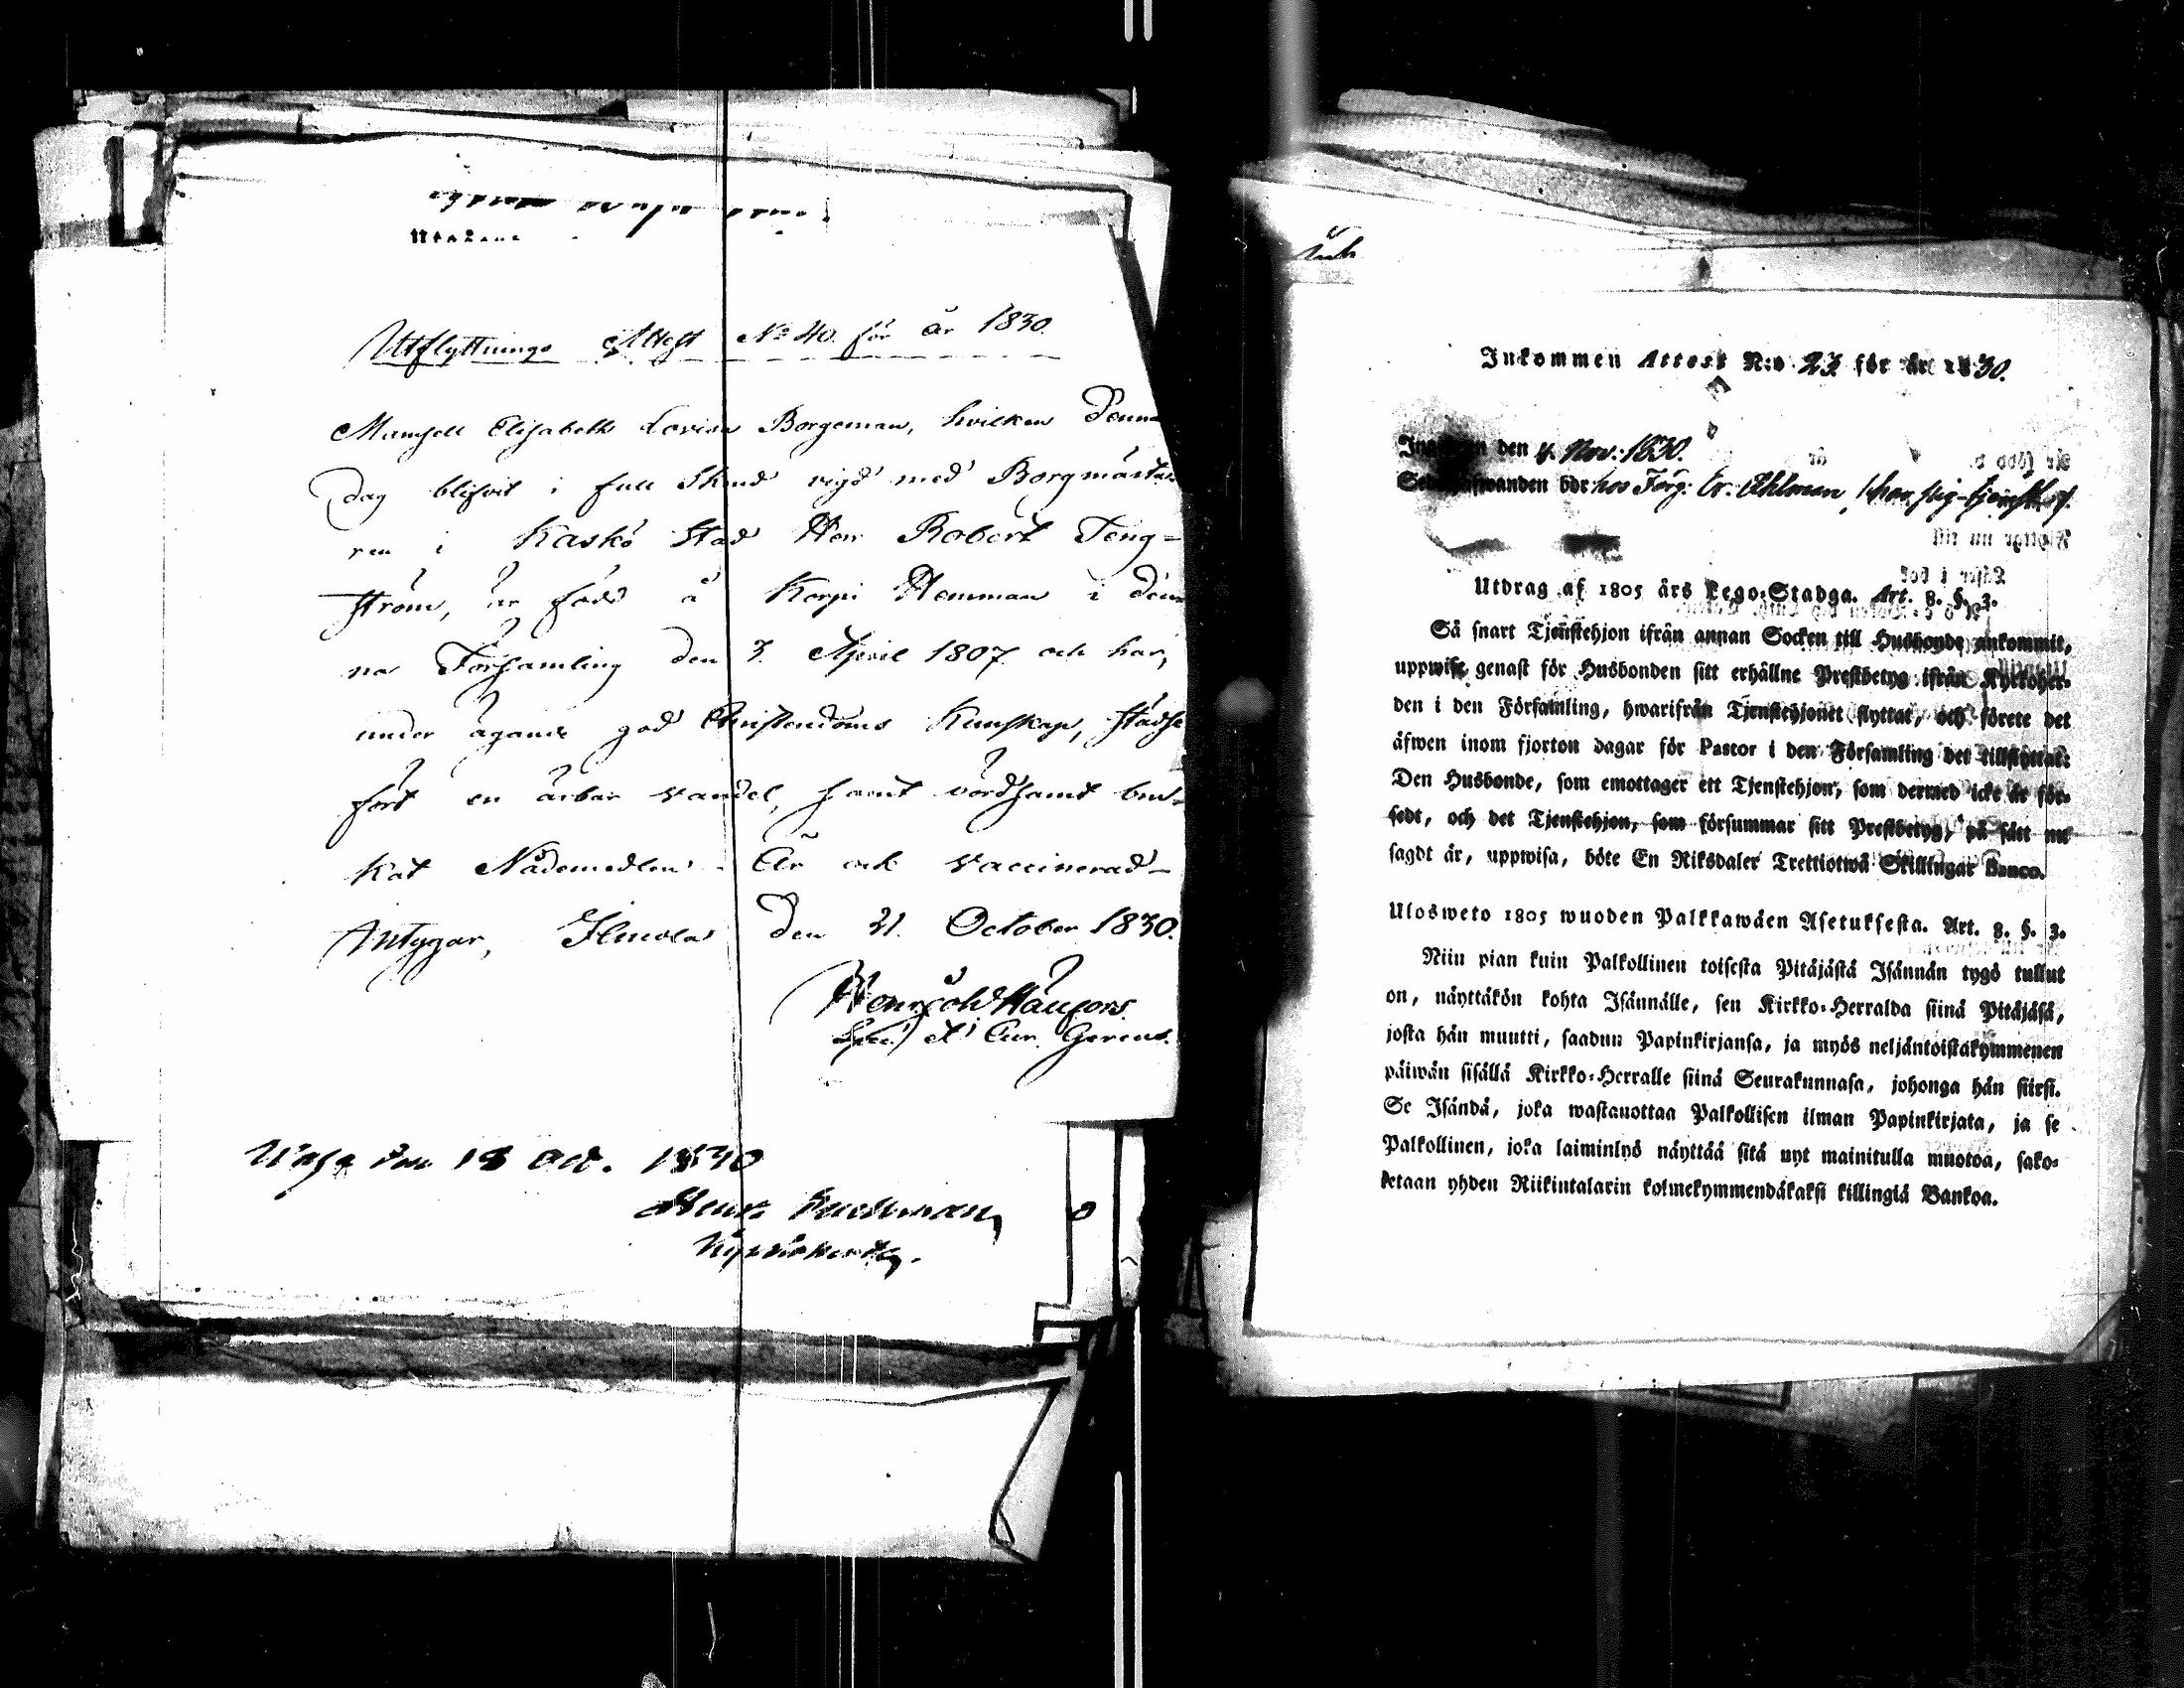 Utflyttnings Attest No 40. för år 1830.
Mamsell Elisabeth Lovisa Borgeman, hvilken denna
dag blifvit i full Stånd vigd med Borgmästa-
ren i Kaskö Stad Herr Robert Teng-
ström, är född å Korpi Hemman i den-
na Församling den 3. April 1807. och har,
under ägande god Christendoms Kunskap, städse
fört en ärbar vandel, samt vördsamt bru-
kat Nådemedlen. Är ock vaccinerad
Intygar, Ilmola den 21. October 1830.
Wasa den 18 Oct. 1830
Inkommen Attest N:o 23 för år 1830.
den 4. Nov: 1830.
bor hos Färg: Er. Ahlman,
Utdrag af 1805 års Lego-Stadga. Art. 8. §. 3.
Så snart Tjenstehjon ifrån annan Socken till Husbonde ankommit,
uppwise genast för Husbonden sitt erhållne Prestbetyg ifrån Kyrkoher-
den i den Församling, hwarifrån Tjenstehjonet flyttat, och förete det
äfwen inom fjorton dagar för Pastor i den Församling det tillflyttat:
Den Husbonde, som emottager ett Tjenstehjon, som dermed icke är för-
sedt, och det Tjenstehjon, som försummar sitt Prestbetyg, på sätt nu
sagdt är, uppwisa, böte En Riksdaler Trettiotwå Skillingar Banco.
Ulosweto 1805 wuoden Palkkawäen Asetuksesta. Art. 8. §. 3.
Niin pian kuin Palkollinen toisesta Pitäjästä Isännän tygö tullut
on, näyttäkön kohta Isännälle, sen Kirkko-Herralda siinä Pitäjäsä,
josta hän muutti, saadun Papinkirjansa, ja myös neljäntoistakymmenen
päiwän sisällä Kirkko-Herralle siinä Seurakunnasa, johonga hän siirsi.
Se Isändä, joka wastauottaa Palkollisen ilman Papinkirjata, ja se
Palkollinen, joka laiminlyö näyttää sitä nyt mainitulla muotoa, sako-
detaan yhden Riikintalarin kolmekymmendäkaksi killingiä Bankoa.